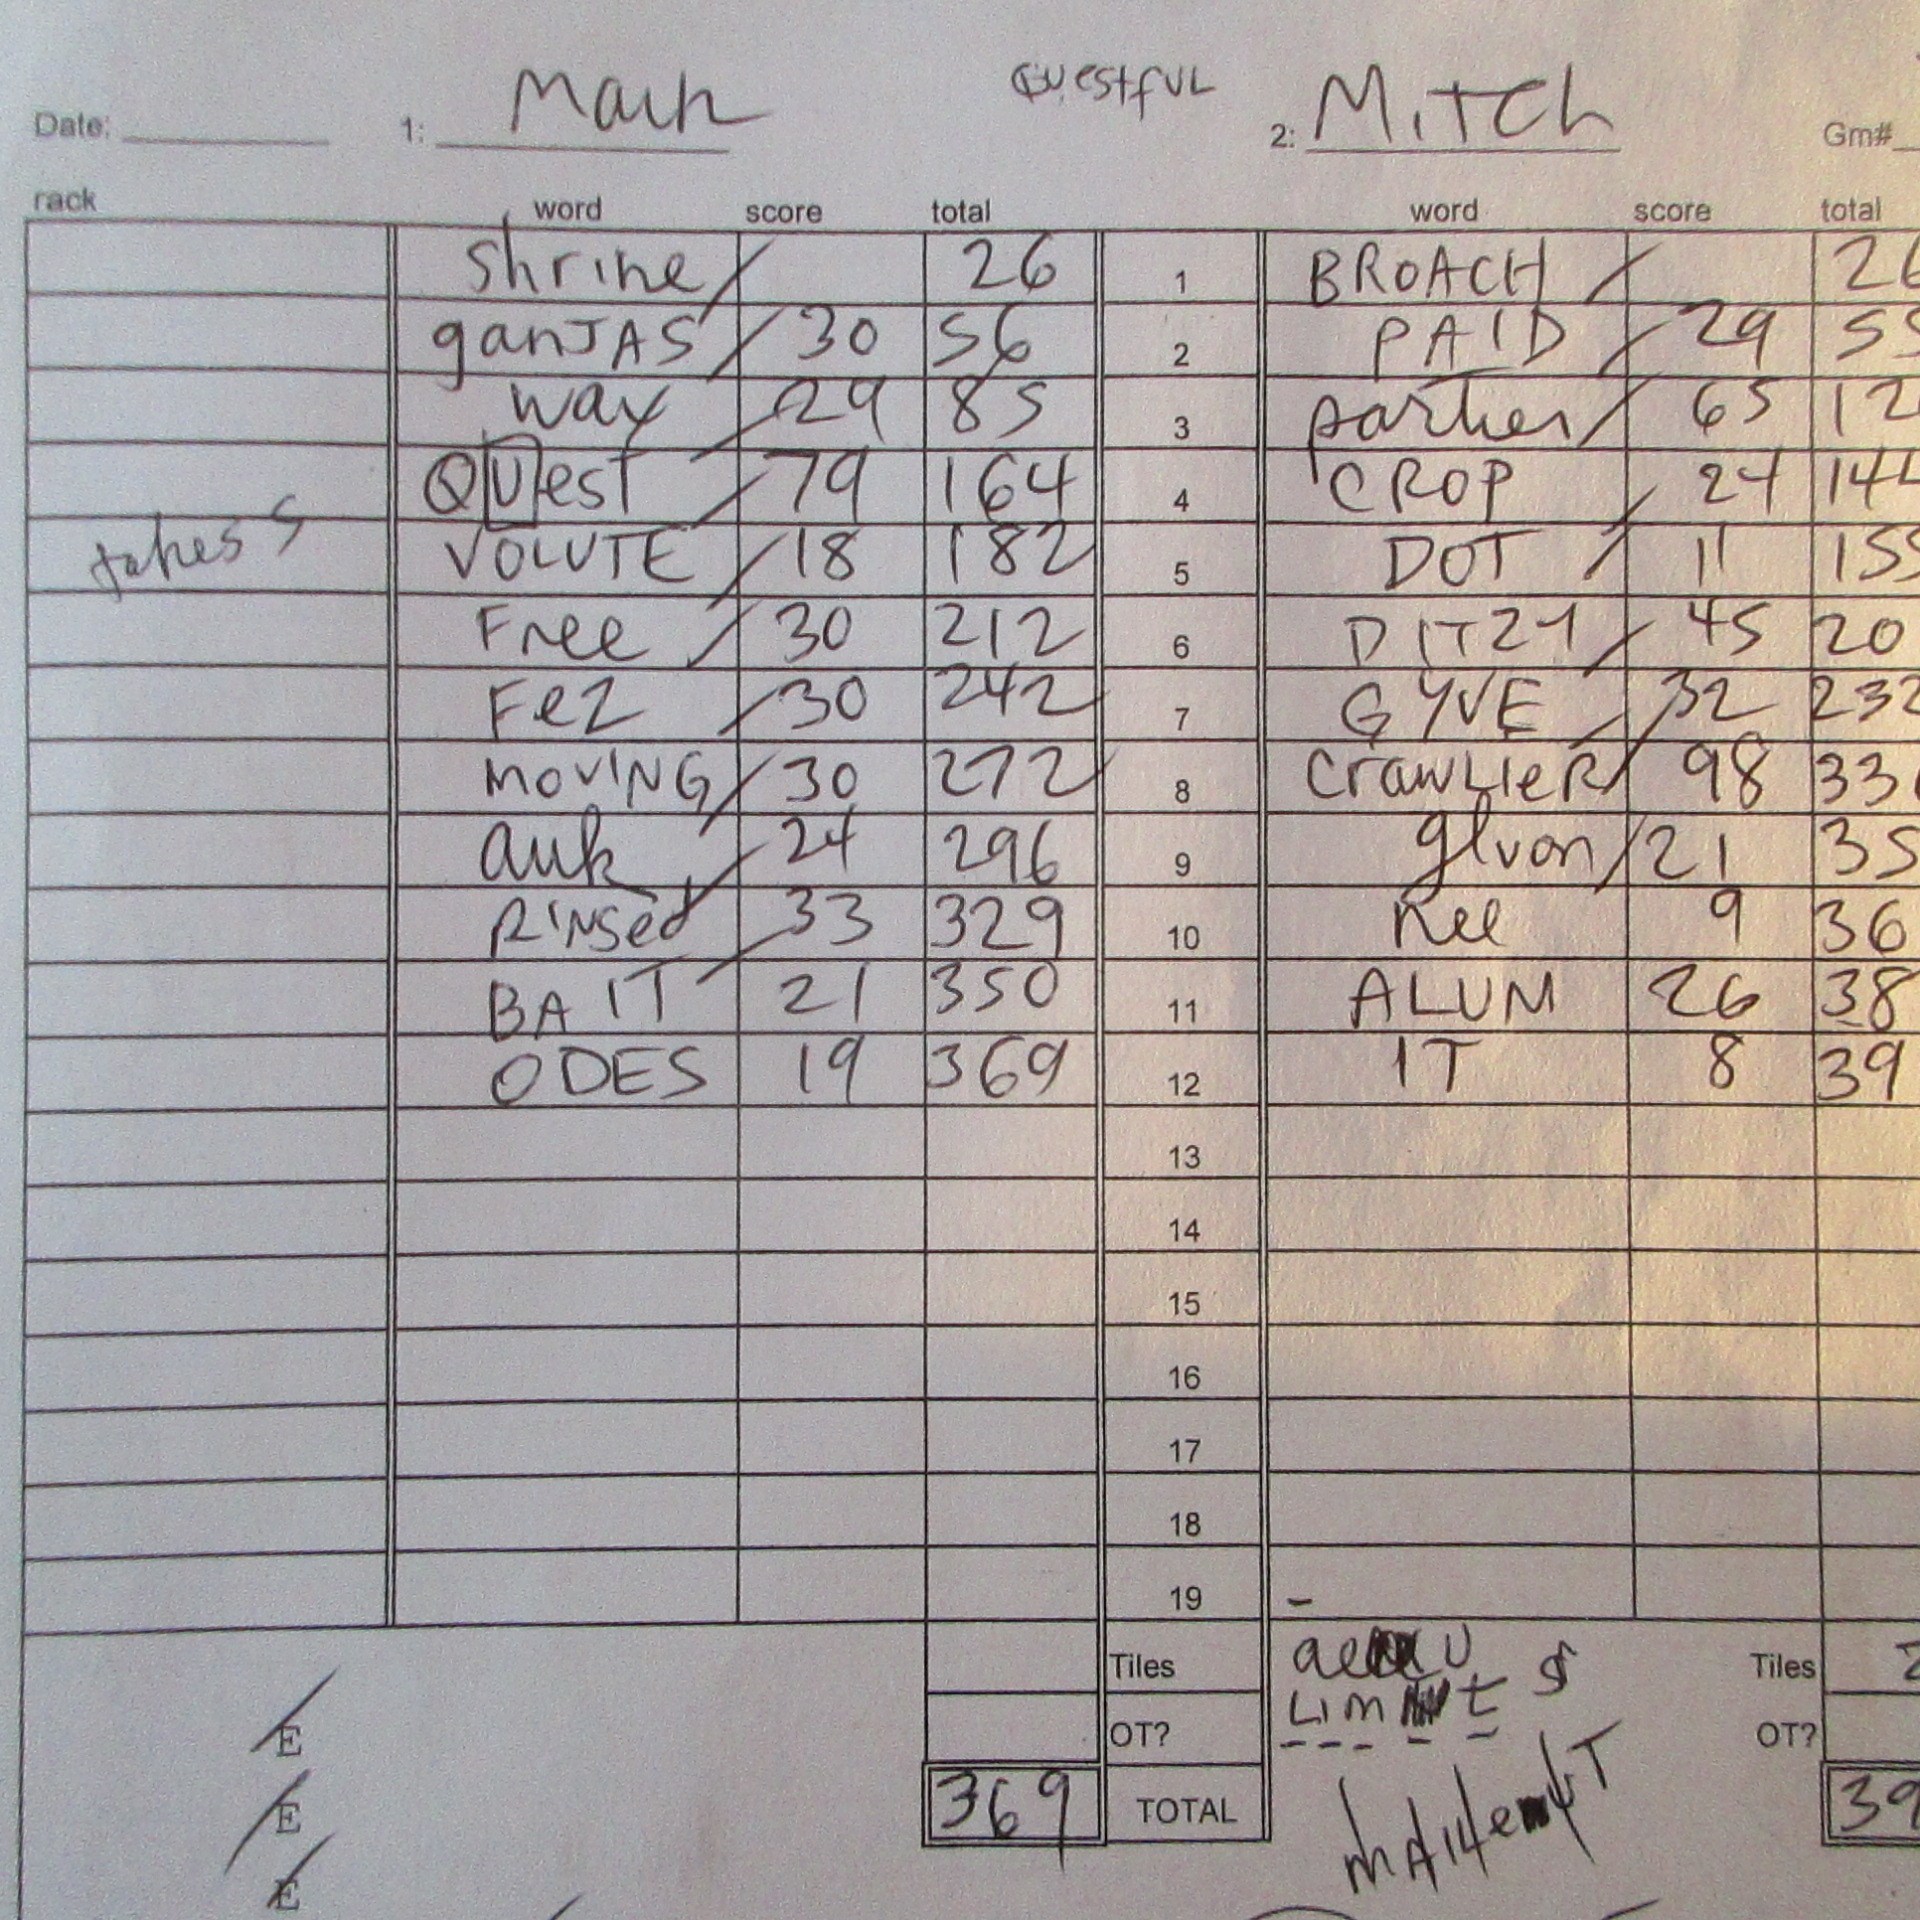 Questful
Date: 1: Mark 2: MiTCh Gm#
rack word score total word score total
Shrine 26 1 BROACH 26
ganJAS 30 56 2 PAID 29 55
way 29 85 3 partier 65 12
QUesT 79 164 4 CROP 24 144
takes S VOLUTE 18 182 5 DOT 11 155
Free 30 212 6 DITZY 45 20
FeZ 30 242 7 GYVE 32 232
MOVING 30 272 8 CrawLIeR 98 33
auk 24 296 9 gluon 21 35
RINSed 33 329 10 Kee 9 36
BAIT 21 350 11 ALUM 26 38
ODES 19 369 12 IT 8 39
13
14
15
16
17
18
19
Tiles Tiles
LIM t
OT? OT?
369 TOTAL 39
E
E
E